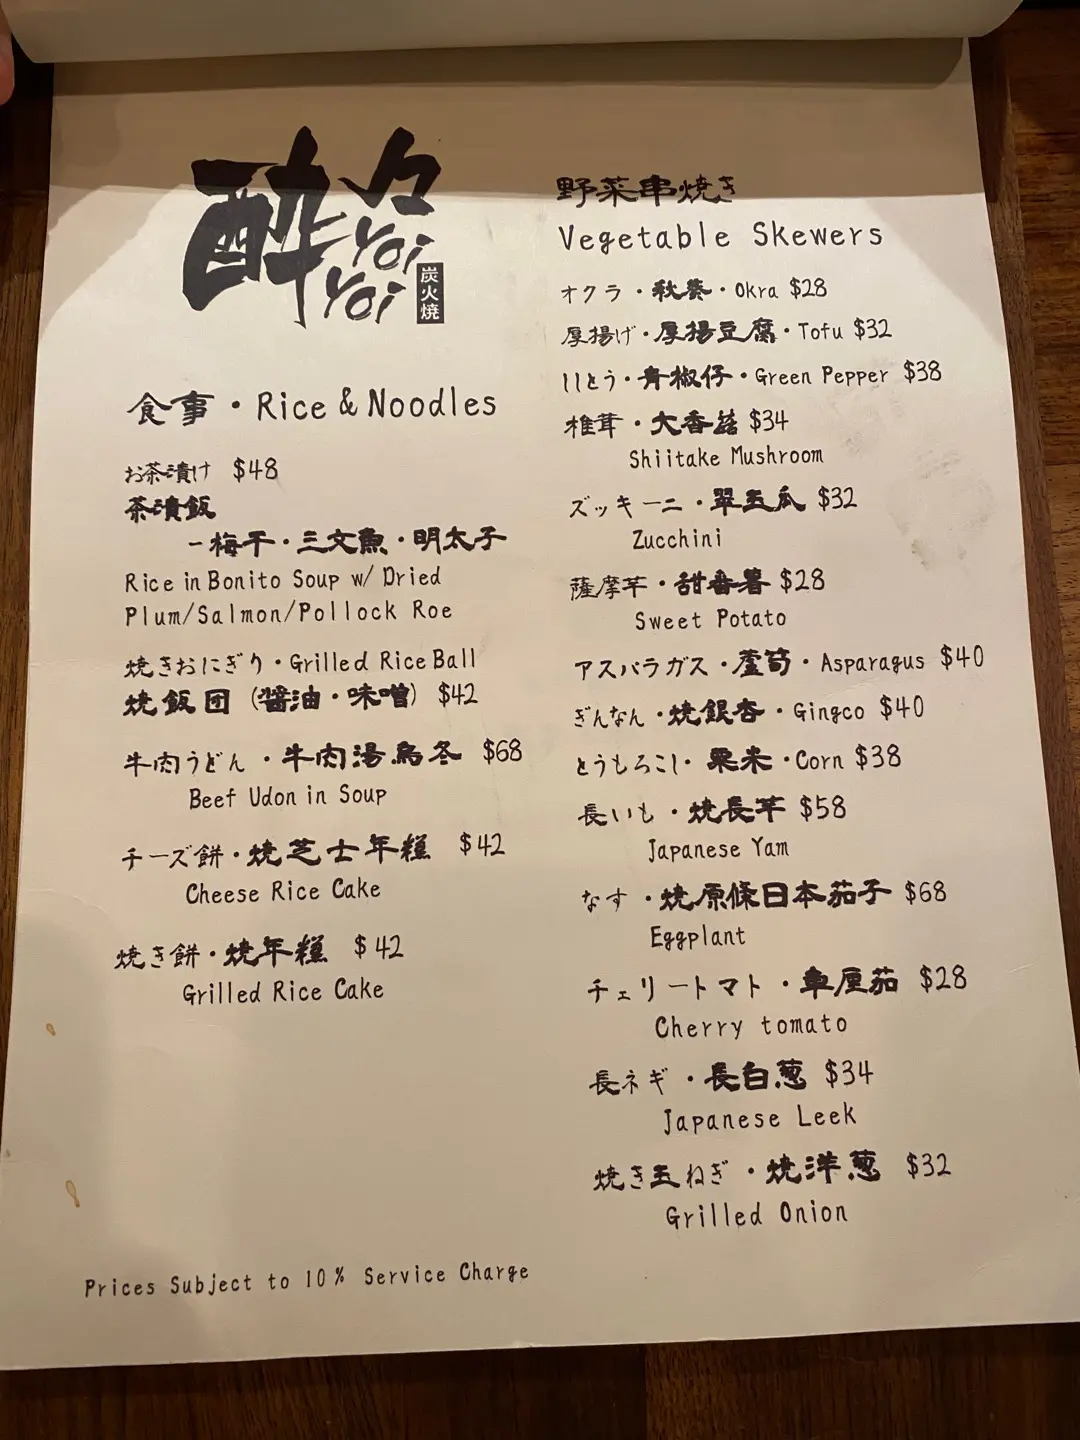 酔々
Yoi
Yoi
炭火焼
食事・Rice & Noodles
お茶漬け $48
茶漬飯
-梅干・三文魚・明太子
Rice in Bonito Soup w/ Dried
Plum/Salmon/Pollock Roe
焼きおにぎり・Grilled Rice Ball
焼飯団 (醤油・味噌) $42
牛肉うどん・牛肉湯烏冬 $68
Beef Udon in Soup
チーズ餅・焼芝士年糕 $42
Cheese Rice Cake
焼き餅・焼年糕 $42
Grilled Rice Cake
Prices Subject to 10% Service Charge
野菜串焼き
Vegetable Skewers
オクラ・秋葵・Okra $28
厚揚げ・厚揚豆腐・Tofu $32
ししとう・青椒仔・Green Pepper $38
椎茸・大香菇 $34
Shiitake Mushroom
ズッキーニ・翠玉瓜 $32
Zucchini
薩摩芋・甜番薯 $28
Sweet Potato
アスパラガス・蘆筍・Asparagus $40
ぎんなん・焼銀杏・Gingco $40
とうもろこし・粟米・Corn $38
長いも・焼長芋 $58
Japanese Yam
なす・焼原條日本茄子 $68
Eggplant
チェリートマト・車厘茄 $28
Cherry tomato
長ネギ・長白葱 $34
Japanese Leek
焼き玉ねぎ・焼洋葱 $32
Grilled Onion